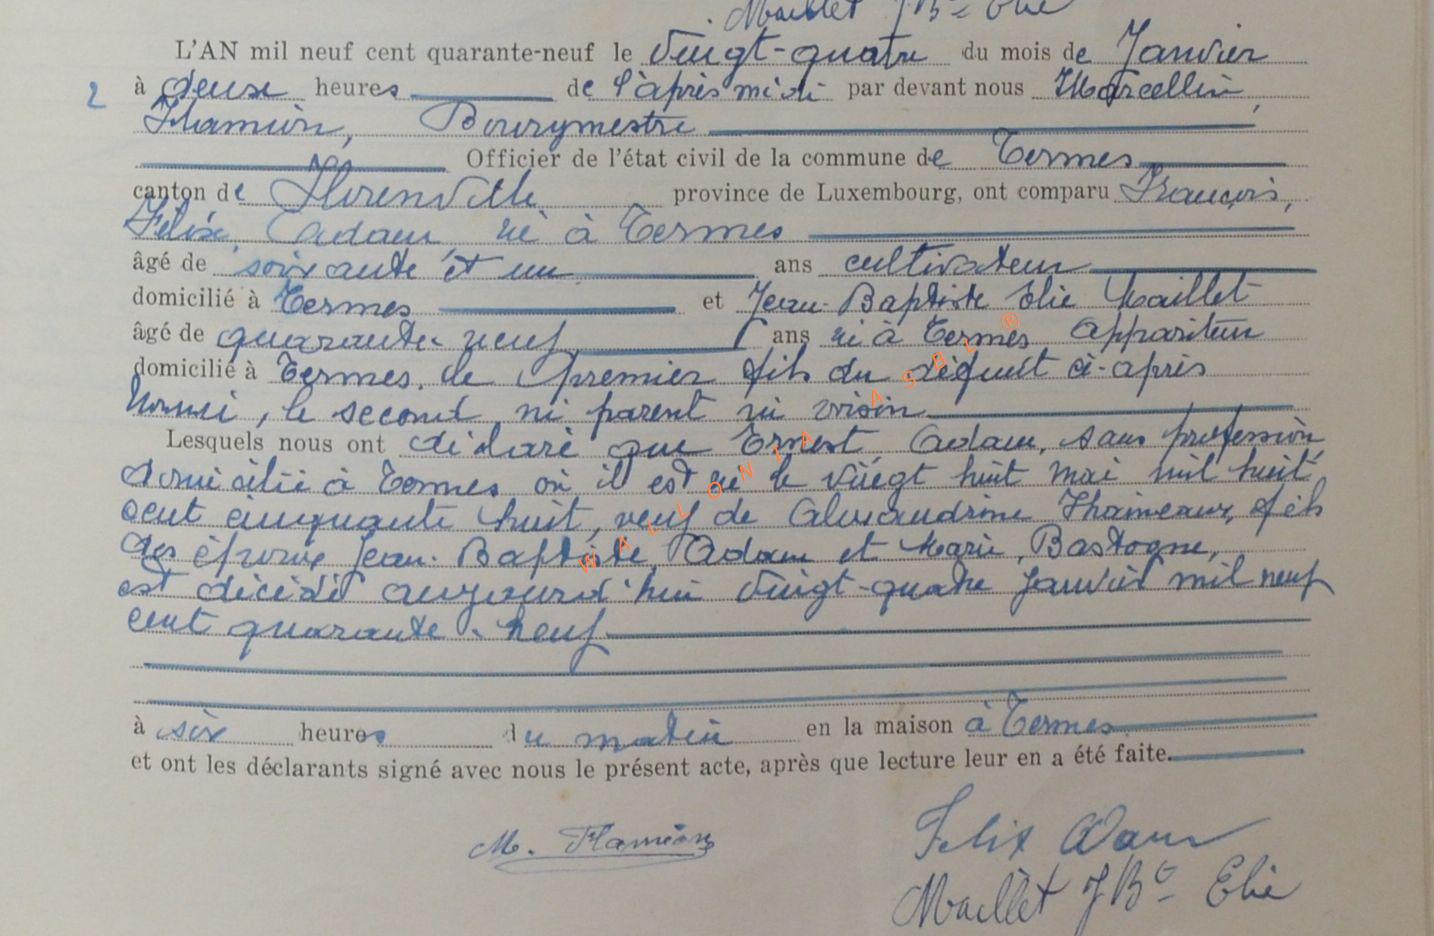 Maillet J Bte Elie
L'AN mil neuf cent quarante-neuf le Vingt-quatre du mois de Janvier
2 à deux heures de l'après midi par devant nous Marcellin,
Flamion, Bourgmestre
Officier de l'état civil de la commune de Termes
canton de Florenville province de Luxembourg, ont comparu François,
Félix, Adam, né à Termes
âgé de soixante et un ans cultivateur
domicilié à Termes et Jean-Baptiste Elie Maillet
âgé de quarante-neuf ans né à Termes, appariteur
domicilié à Termes, le premier fils du défunt ci-après
nommé, le second ni parent ni voisin
Lesquels nous ont déclaré que Ernest Adam, sans profession
domicilié à Termes où il est né le vingt huit mai mil huit
cent cinquante huit, veuf de Alexandrine fils
des époux Jean-Baptiste Adam et Marie Bastogne,
est décédé aujourd'hui Vingt-quatre Janvier mil neuf
cent quarante-neuf
à six heures du matin en la maison à Termes
et ont les déclarants signé avec nous le présent acte, après que lecture leur en a été faite.
M. Flamion
Felix Adam
Maillet J Bte Elie
WALLONIA ASBL ®